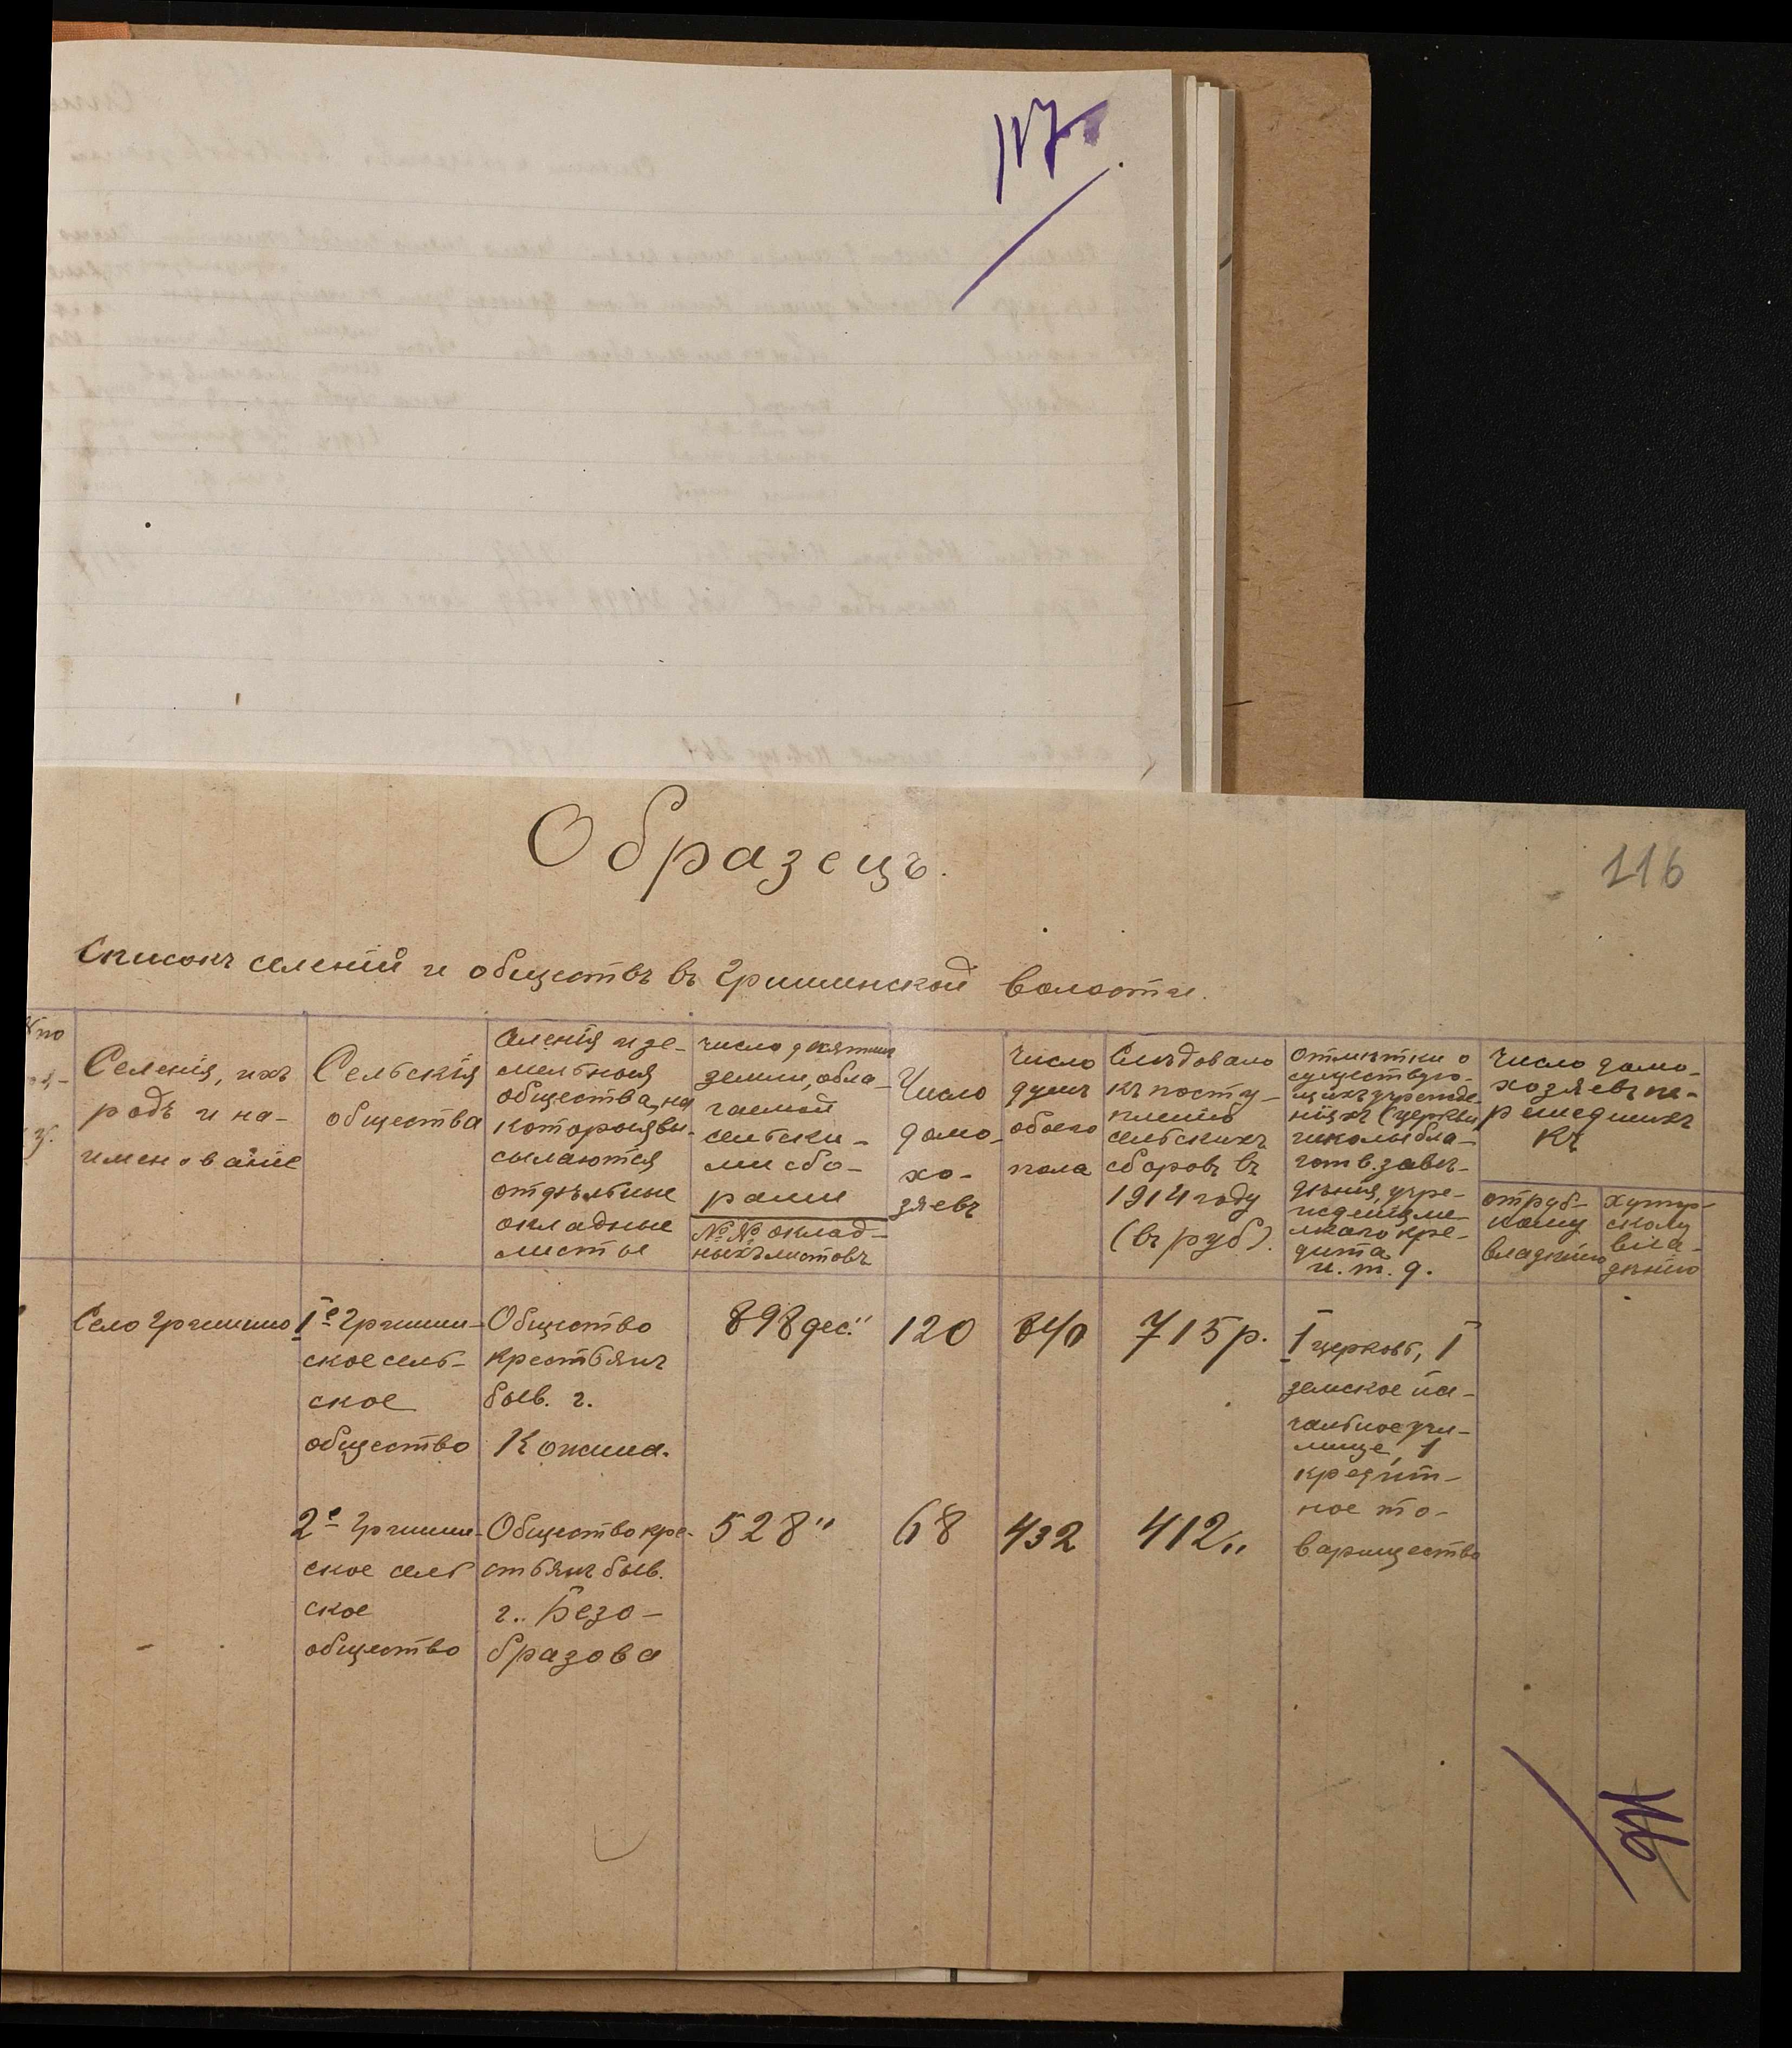 117
Образецъ.
116
Списокъ селеній и обществъ въ Гришинской волости.
№ по
Селенія, ихъ
родъ и на-
именованіе
Сельскія
общества
Селенія и зе-
мельныя
общества, на
которыя вы-
сылаются
отдѣльные
окладные
листы
Число десятинъ
земли, обла-
гаемой
сельски-
ми сбо-
рами
№№ оклад-
ныхъ листовъ
Число
домо-
хо-
зяевъ
Число
душъ
обоего
пола
Слѣдовало
къ посту-
пленію
сельскихъ
сборовъ въ
1914 году
(въ руб).
Отмѣтки о
существую-
щихъ учрежде-
ніяхъ (церкви,
школы, бла-
готв. заве-
денія, учре-
жденія ме-
лкаго кре-
дита
и. т. д.
Число домо-
хозяевъ пе-
решедшихъ
къ
отруб-
ному
владѣнію
хутор-
скому
вла-
дѣнію
Село Гришино
1е Гришин-
ское сель-
ское
общество
Общество
крестьянъ
быв. г.
Кожина.
898 дес."
120
840
715 р.
1 церковь, 1
земское на-
чальное учи-
лище, 1
кредит-
ное то-
варищество
2е Гришин-
ское сель
ское
общество
Общество кре-
стьянъ быв.
г. Безо-
бразова
528 "
68
432
412 "
116